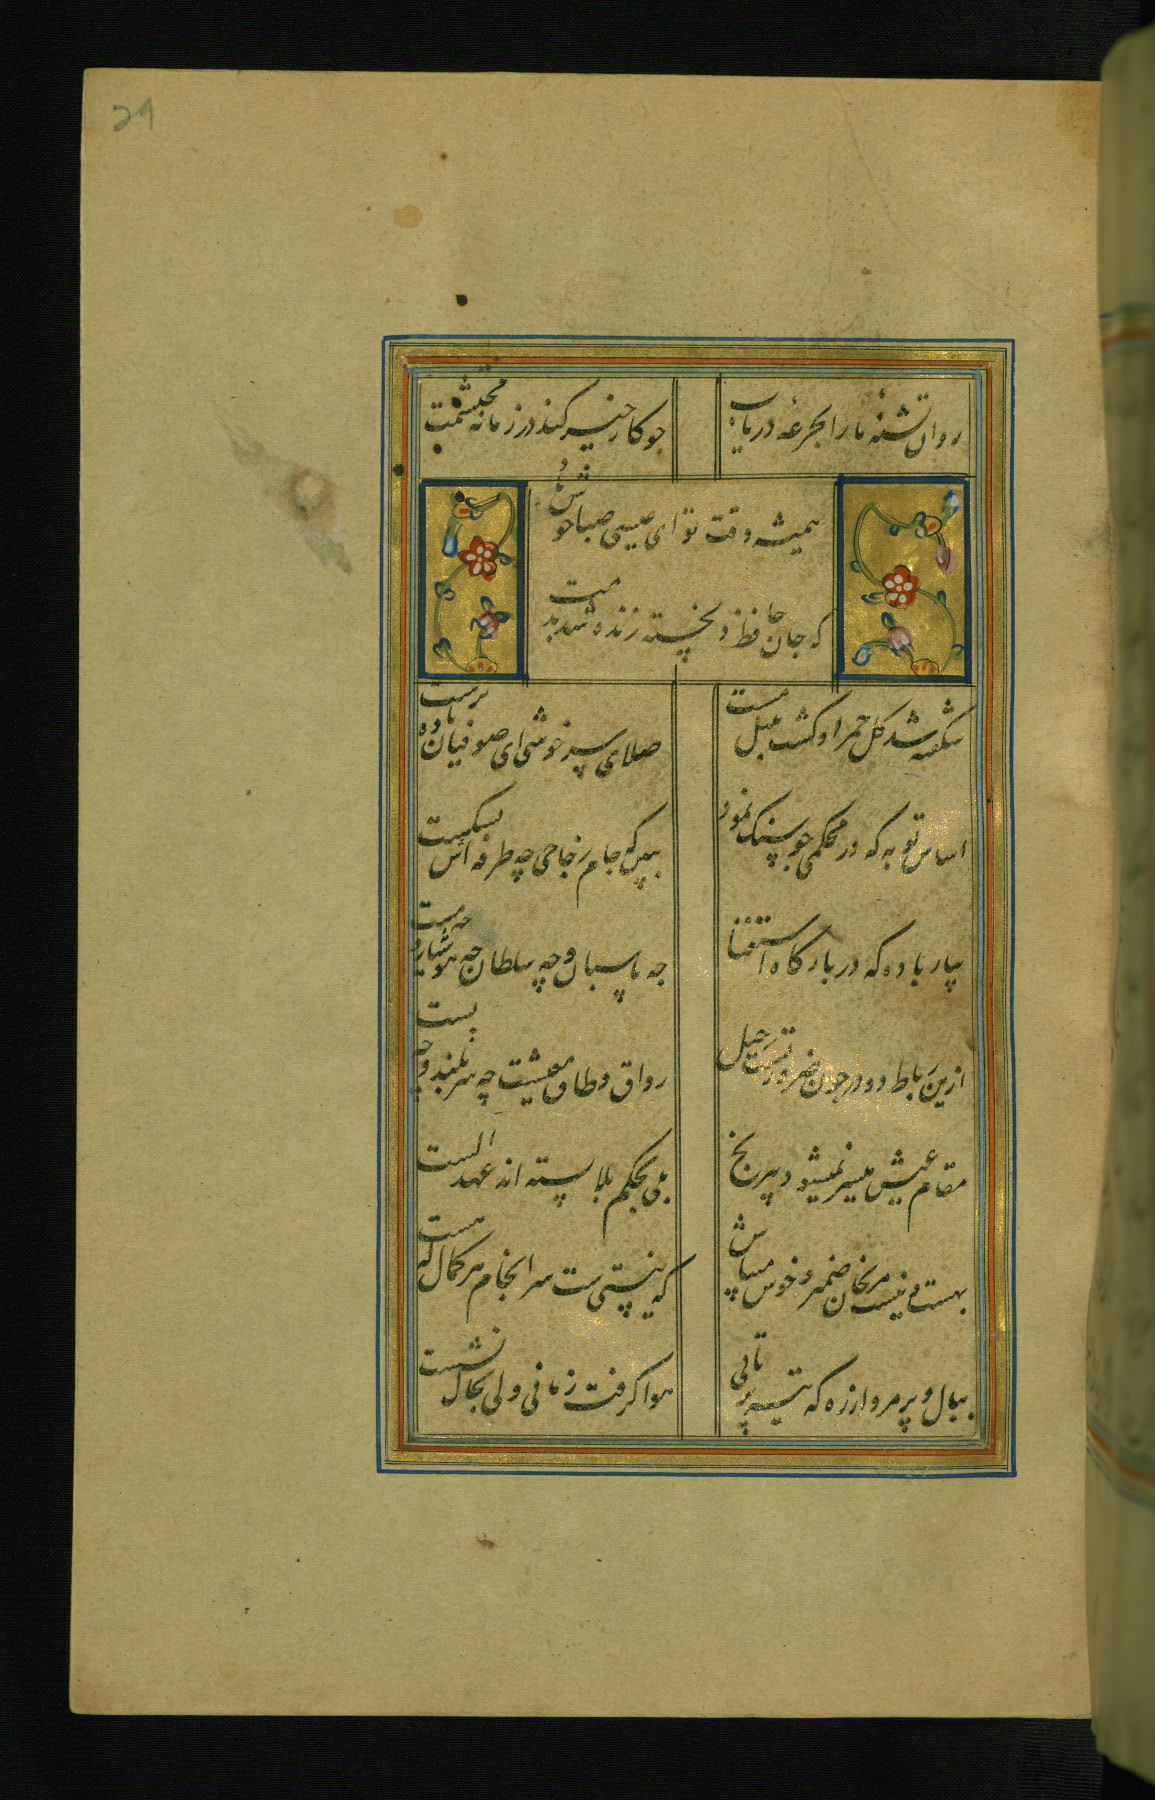 29
روان تشنهٔ ما را بجرعهٔ دریاب
جو کار خیر کند در زمانه
همیشه وقت تو ای عیسی صبا خوش باد
که جان حافظ دلخسته زنده شد بدمت
شکفته شد کل حمرا و کشت بلبل مست
صلای سرخوشی ای صوفیان باده پرست
اساس توبه که در محکمی جو سنک نمود
ببین که جام زجاجی چه طرفه اش بشکست
بیار باده که در بارکاه استغنا
جه پاسبان و چه سلطان جه هوشیار و چه مست
ازین رباط دو در جون ضرورتست رحیل
رواق و طاق معیشت چه سربلند و چه پست
مقام عیش میسر نمیشود بی رنج
بلی بحکم بلا بسته اند عهد الست
بهست و نیست مرنجان ضمیر و خوش میباش
که نیستی ست سرانجام هر کمال که هست
ببال و پر مرو از ره که تیر پرتابی
هوا کرفت زمانی ولی بخاک نشست